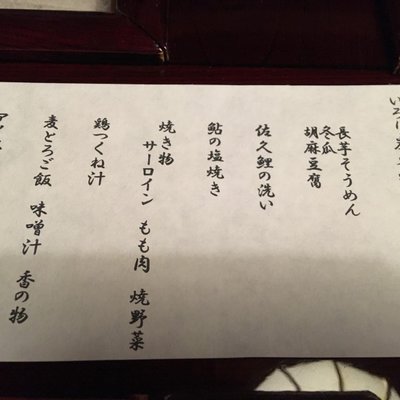 長芋そうめん
冬瓜
胡麻豆腐
佐久鯉の洗い
鮎の塩焼き
焼き物
サーロイン もも肉 焼野菜
鶏つくね汁
麦とろご飯 味噌汁 香の物